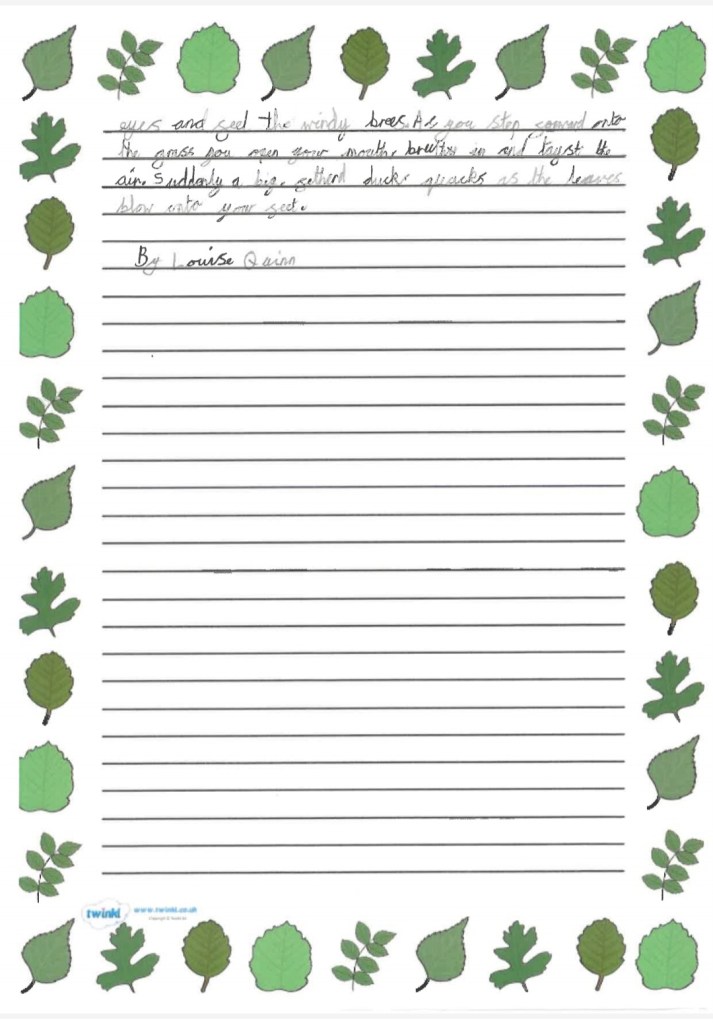 eyes and feel the windy brees. As you step forward onto
the grass you open your mouth, breaths in and tayst the
air. Suddenly a big, fetherd duck quacks as the leaves
blow onto your feet.
By Louise Quinn
twinkl www.twinkl.co.uk